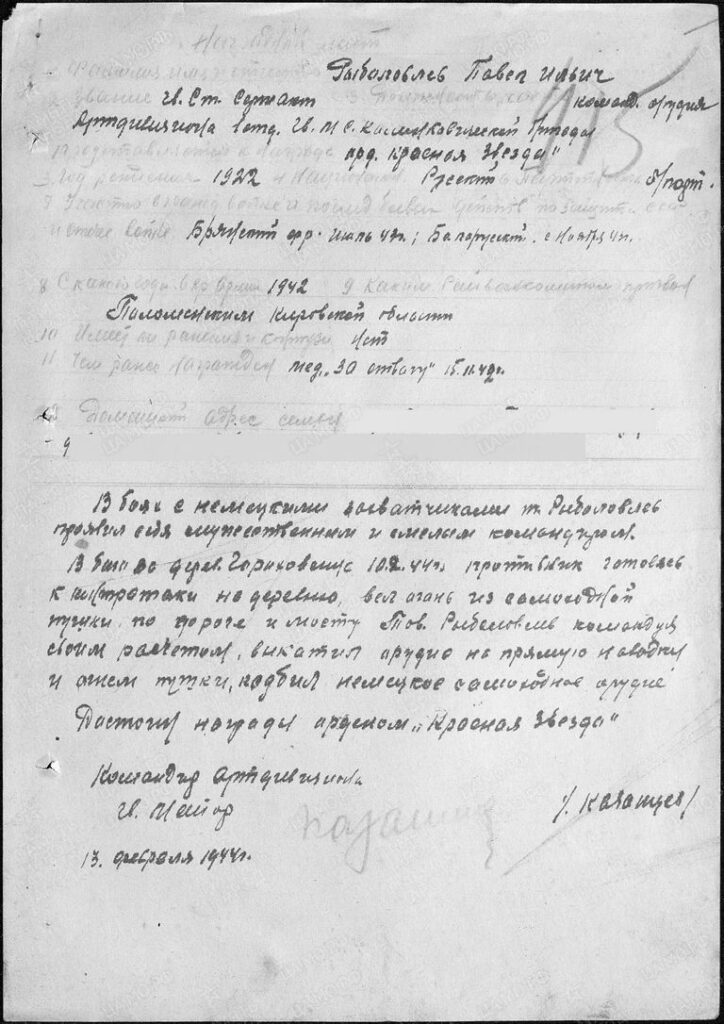 Наградной лист
1 Фамилия имя отчество Рыболовлев Павел Ильич
2 Звание Гв. Ст. Сержант 3 Должность, часть команд. орудия
Артдивизиона 1 отд. Гв. М С. Калинковической бригады
представляется к награде орд. "Красная Звезда"
5 Год рождения 1922 Русский б/парт.
и отеч. войне Брянский фр. июль 43г; Белорусский. с ноября
8 С какого года в Кр Армии 1942 9 Каким Райвоенкоматом призван
Кировской области
10 Имеет ли ранения и контузии Нет
11 Чем ранее награжден мед. "За отвагу"
Домашний адрес семьи
В боях с немецкими захватчиками т. Рыболовлев
проявил себя мужественным и смелым командиром.
В бою за дерев. 44г. противник готовясь
к контратаки на деревню, вел огонь из самоходной
пушки по дороге и мосту Тов. Рыболовлев командуя
своим расчетом, выкатил орудие на прямую наводку
и огнем пушки, подбил немецкое самоходное орудие
Достоин награды орденом „Красная Звезда"
Командир артдивизиона
Гв. Майор /Казанцев/
13. февраля 1944г.